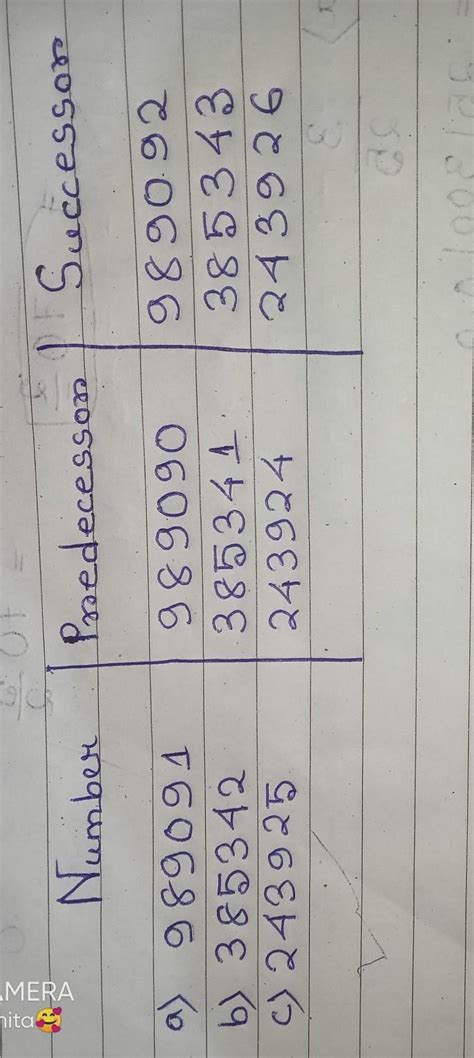 Number Predecessor Successor
a) 989091 989090 989092
b) 385342 385341 385343
c) 243925 243924 243926
AMERA
nita🥰